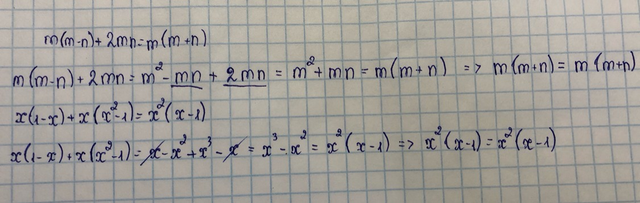 m(m-n)+2mn=m(m+n)
m(m-n)+2mn=m²-mn+2mn=m²+mn=m(m+n) => m(m+n)=m(m+n)
x(1-x)+x(x²-1)=x²(x-1)
x(1-x)+x(x²-1)=x-x²+x³-x=x³-x²=x²(x-1)=>x²(x-1)=x²(x-1)